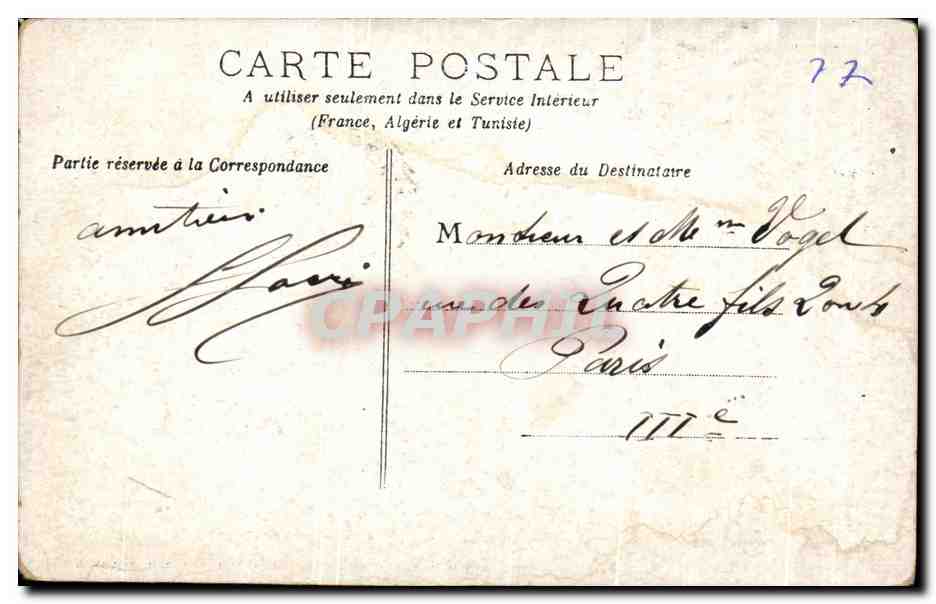 CARTE POSTALE
77
A utiliser seulement dans le Service Intérieur
(France, Algérie et Tunisie)
Partie réservée à la Correspondance
Adresse du Destinataire
amitiés
Monsieur et Mme Vogel
rue des Quatre fils
Paris
IIIe
CPAPHIL